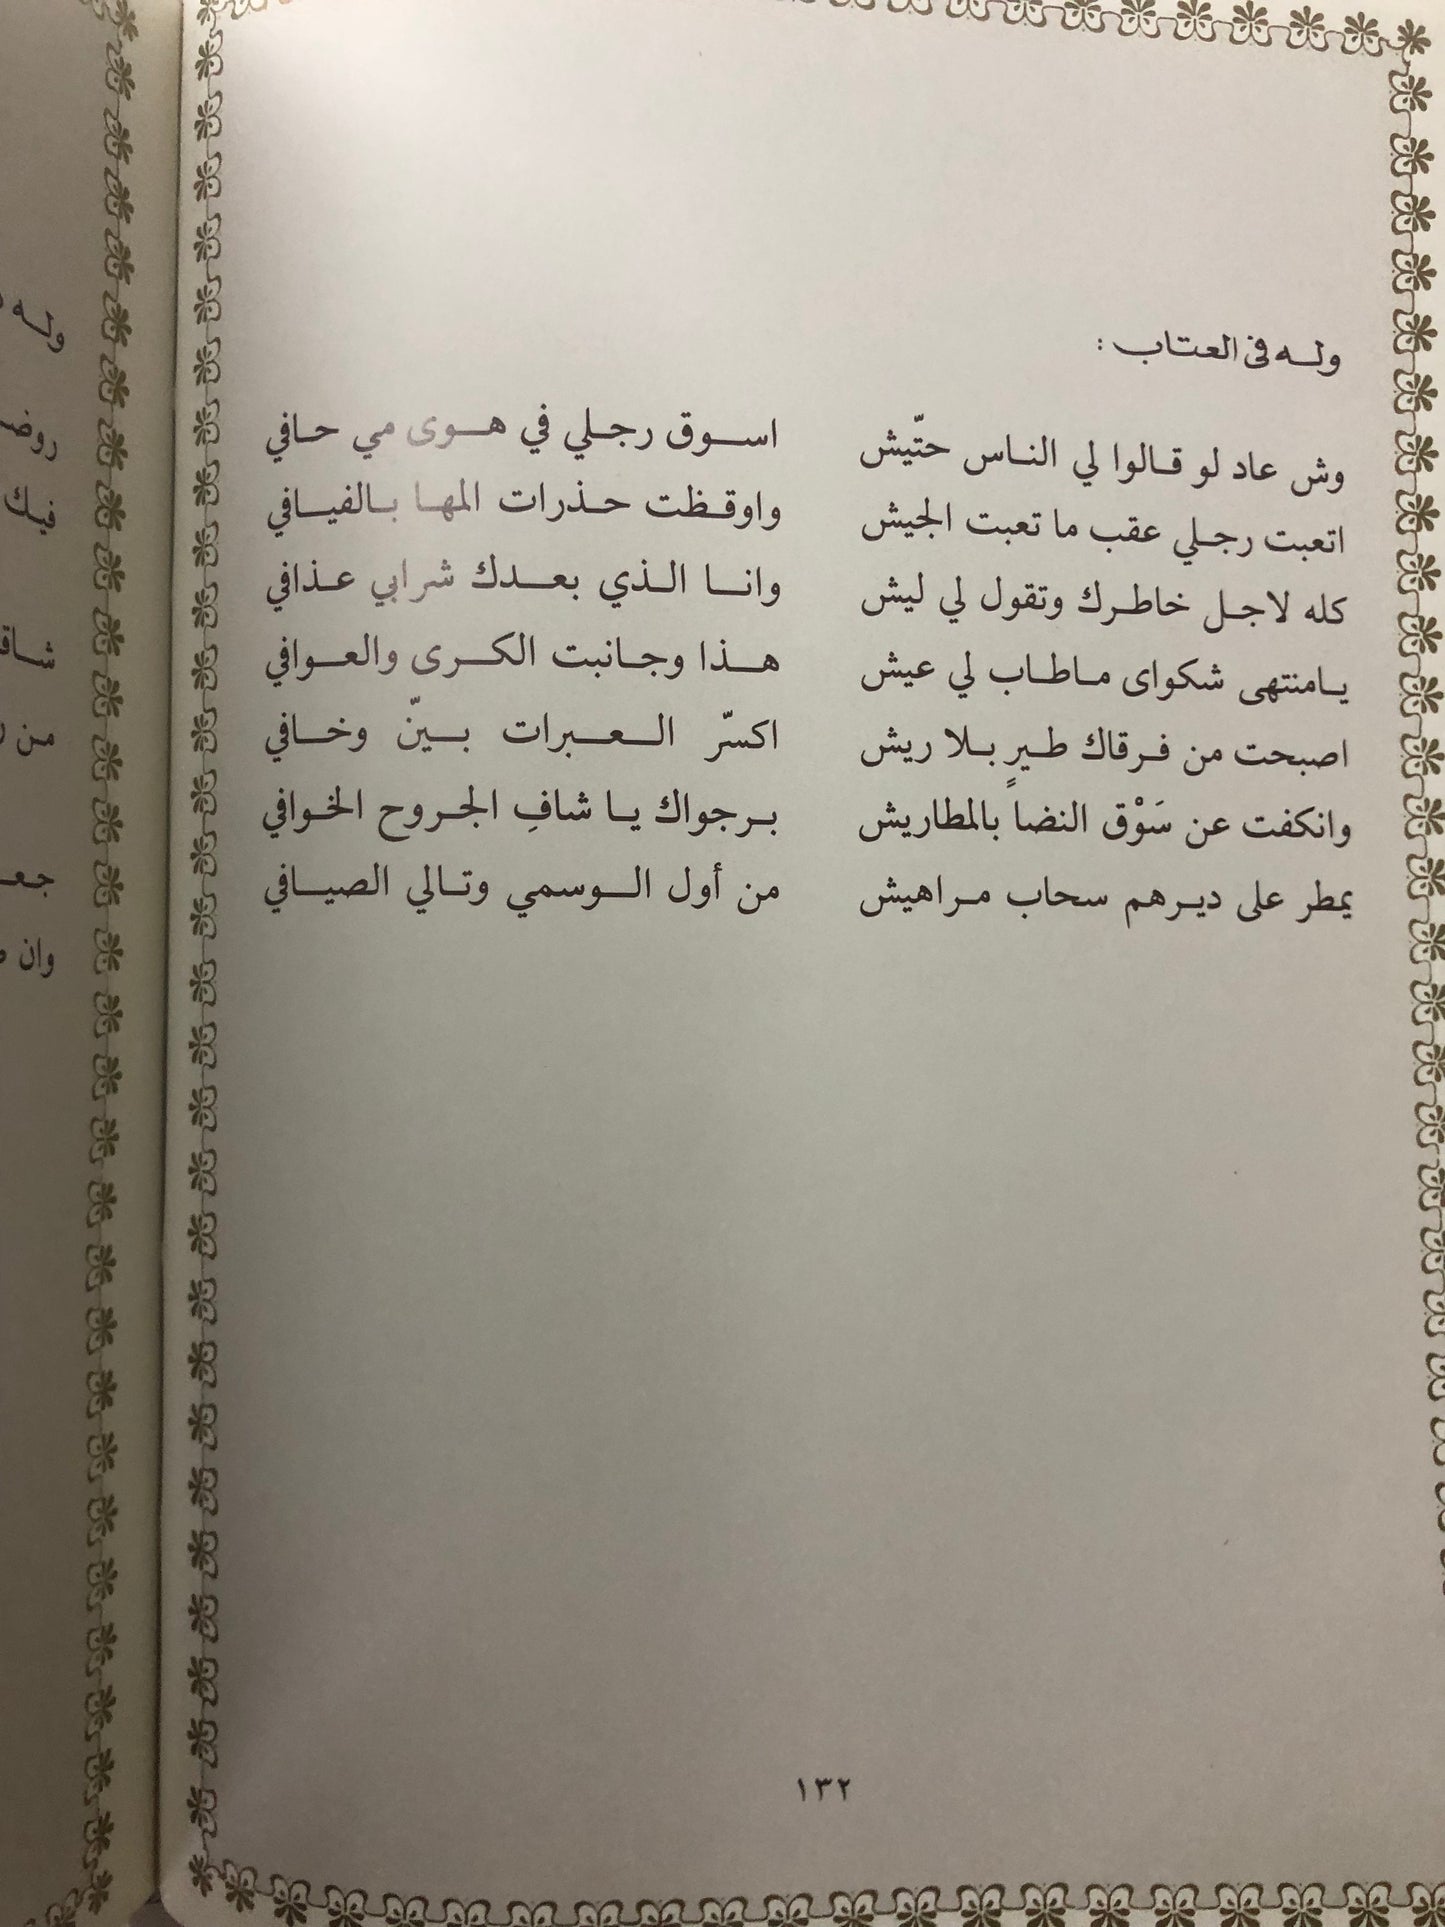 وله في العتاب :
وش عاد لو قالوا لي الناس حتّيش اسوق رجلي في هوى مي حافي
اتعبت رجلي عقب ما تعبت الجيش واوقظت حذرات المها بالفيافي
كله لاجل خاطرك وتقول لي ليش وانا الذي بعدك شرابي عذافي
يامنتهى شكواى ماطاب لي عيش هذا وجانبت الكرى والعوافي
اصبحت من فرقاك طيرٍ بلا ريش اكسرّ العبرات بينّ وخافي
وانكفت عن سَوْق النضاً بالمطاريش برجواك يا شافِ الجروح الخوافي
يمطر على ديرهم سحاب مراهيش من أول الوسمي وتالي الصيافي
١٣٢
وله
روضـ
فيك
شاقـ
من
جعـ
وان